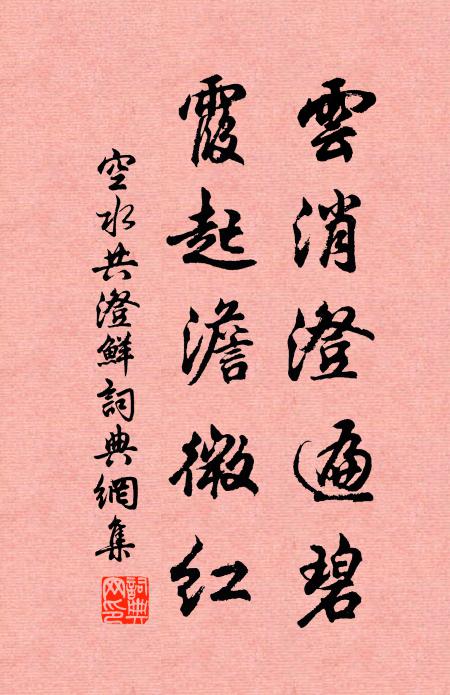 雲消澄遍碧
霞起澹微红
空水共澄鮮詞典網集
詞典
网印